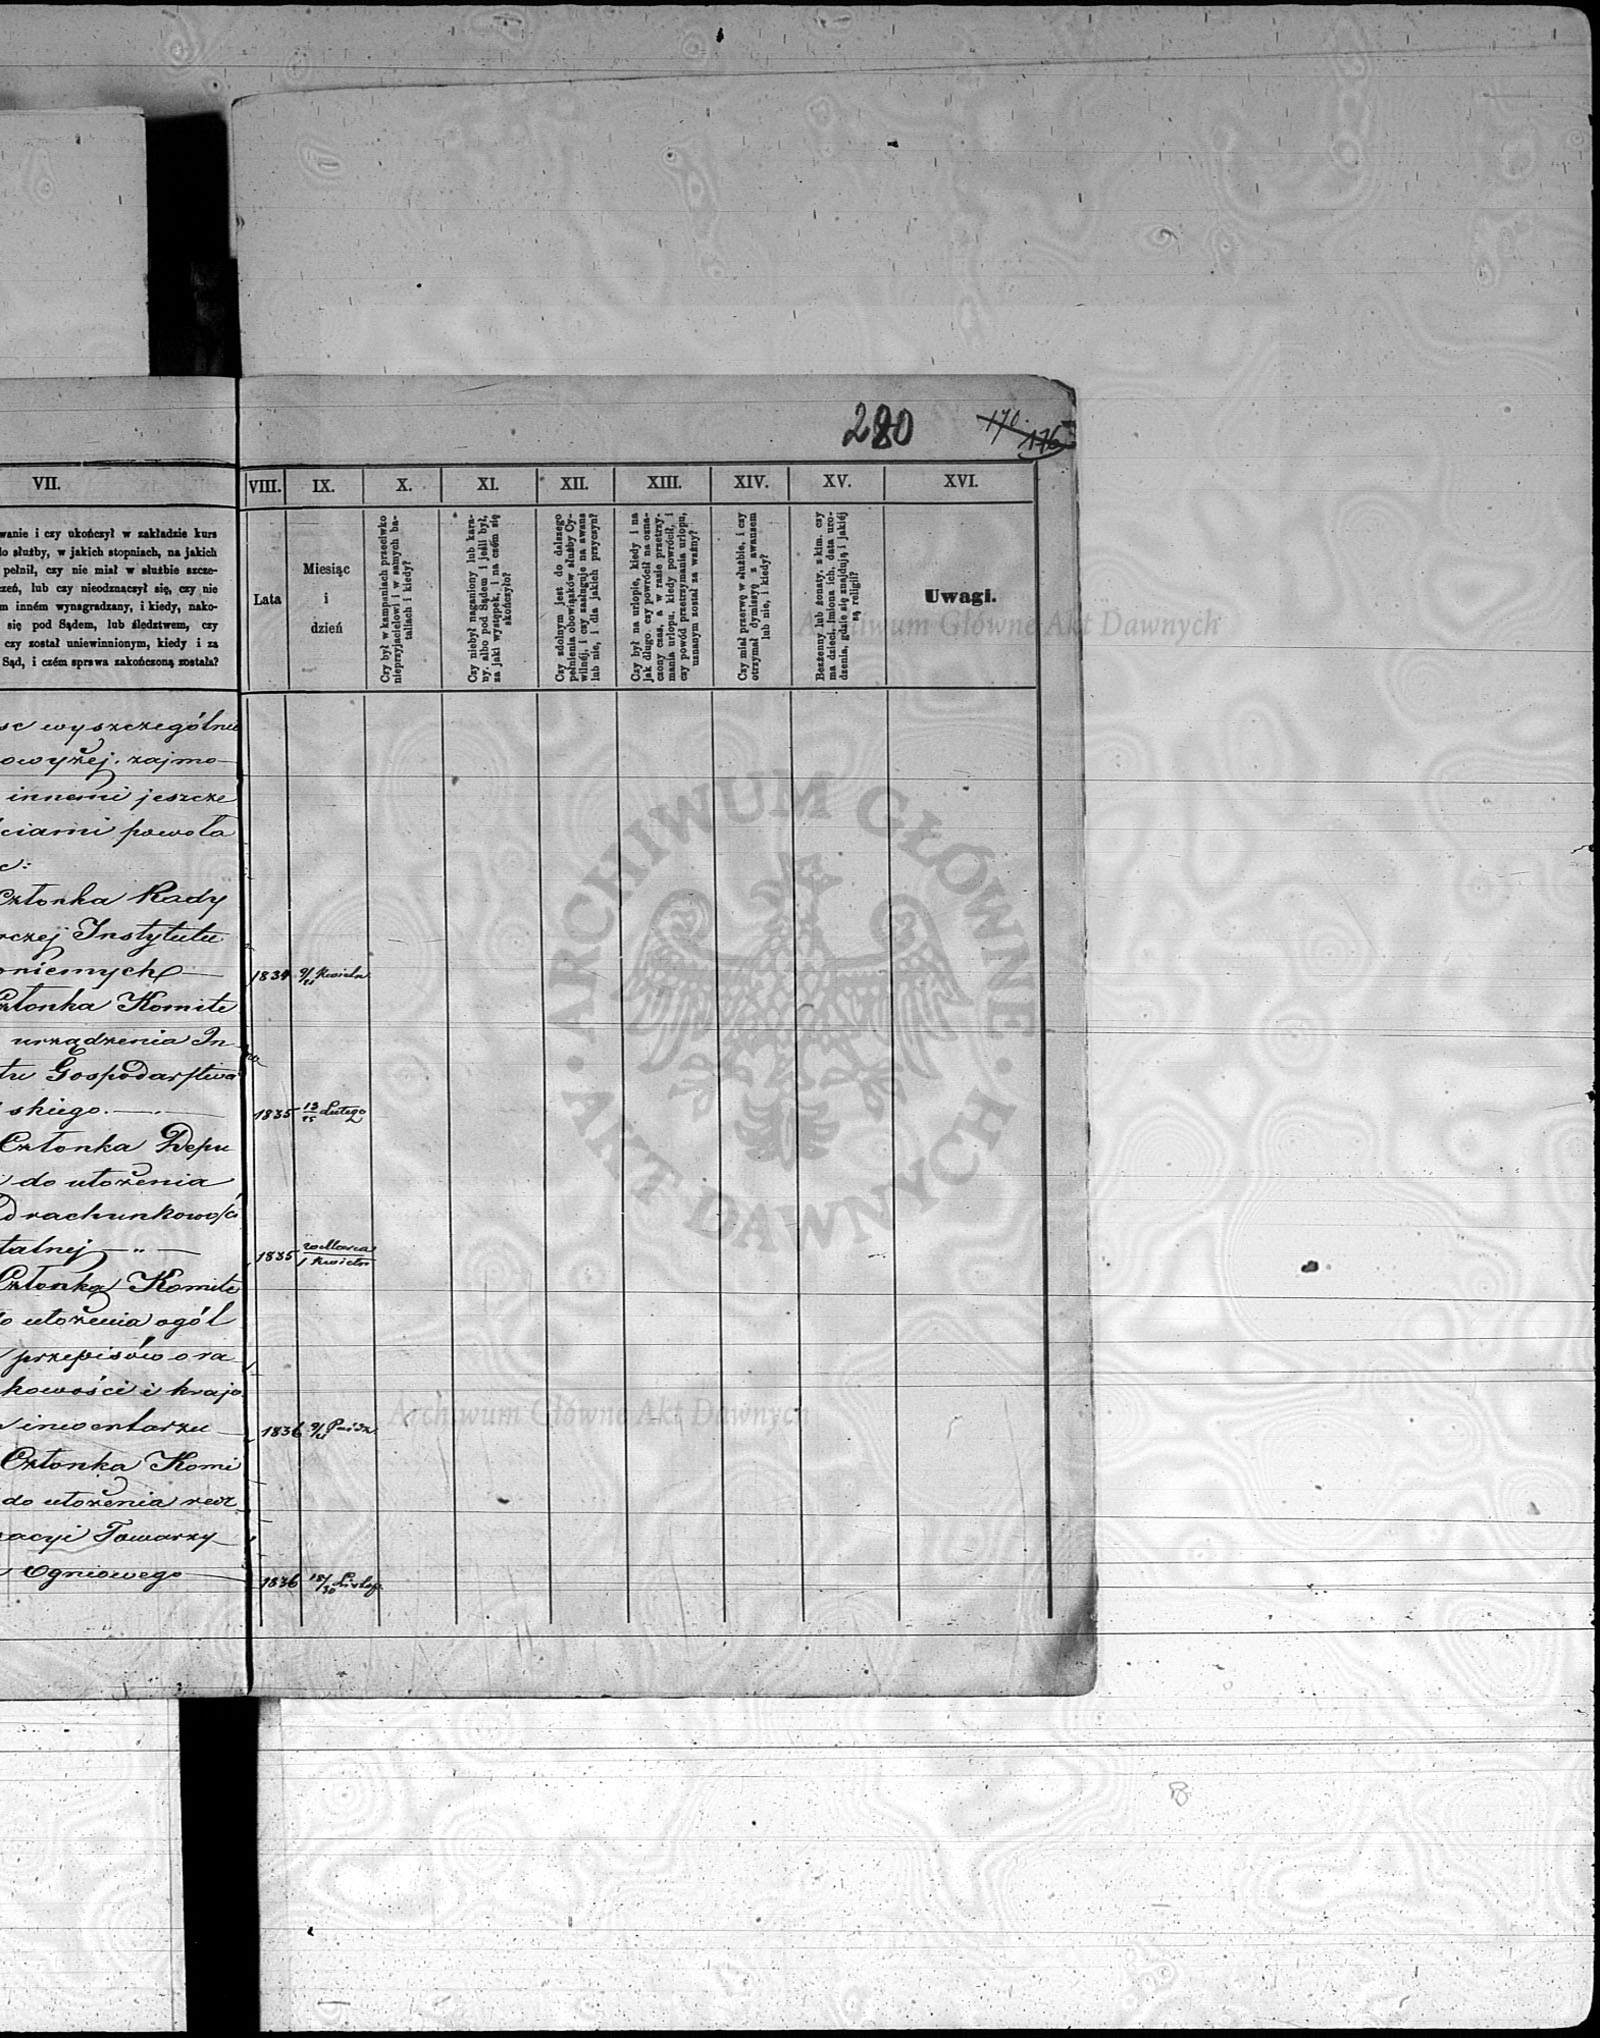 280
170.
176
VII.
VIII.
IX.
X.
XI.
XII.
XIII.
XIV.
XV.
XVI.
wanie i czy ukończył w zakładzie kurs
do służby, w jakich stopniach, na jakich
pełnił, czy nie miał w służbie szcze-
zeń, lub czy nieodznączył się, czy nie
m inném wynagradzany, i kiedy, nako-
się pod Sądem, lub śledztwem, czy
czy został uniewinnionym, kiedy i za
Sąd, i czém sprawa zakończoną została?
Lata
Miesiąc
i
dzień
Czy był w kampaniach przeciwko
nieprzyjacielowi i w samych ba-
taliach i kiedy?
Czy niebył naganiony lub kara-
ny, albo pod Sądem i jeśli był,
za jaki występek, i na czém się
skończyło?
Czy zdolnym jest do dalszego
pełnienia obowiąsków służby Cy-
wilnéj, i czy zasługuje na awans
lub nie, i dla jakich przyczyn?
Czy był na urlopie, kiedy i na
jak długo, czy powrócił na ozna-
czony czas, a w razie przetrzy-
mania urlopu, kiedy powrócił, i
czy powód przetrzymania urlopu,
uznanym został za ważny?
Czy miał przerwę w służbie, i czy
otrzymał dymissyę z awansem
lub nie, i kiedy?
Bezżenny lub żonaty, z kim, czy
ma dzieci, imiona ich, data uro-
dzenia, gdzie się znajdują i jakiéj
są religii?
Uwagi.
Archiwum Główne Akt Dawnych
sc wyszczególnie
owyżej, zajmo-
innemi jeszcze
ciami powoła
c:
Członka Rady
rczej Instytutu
oniemych — 1834 9/21 Kwietn
Członka Komite
urządzenia In
tu Gospodarstwa
skiego. — 1835 13/25 Lutego
Członka Depu
do ułożenia
rachunkowości
talnej — " — 1835 20 Marca/1 Kwietn
Członka Komite
o ułożenia ogól
przepisów o ra
kowości i krajo
inwentarzu — 1836 9/21 Paźdz.
Członka Komi
do ułożenia
acyi Towarzy
Ogniowego — 1836 18/30 Listop.
ARCHIWUM GŁÓWNE · AKT DAWNYCH ·
Archiwum Główne Akt Dawnych